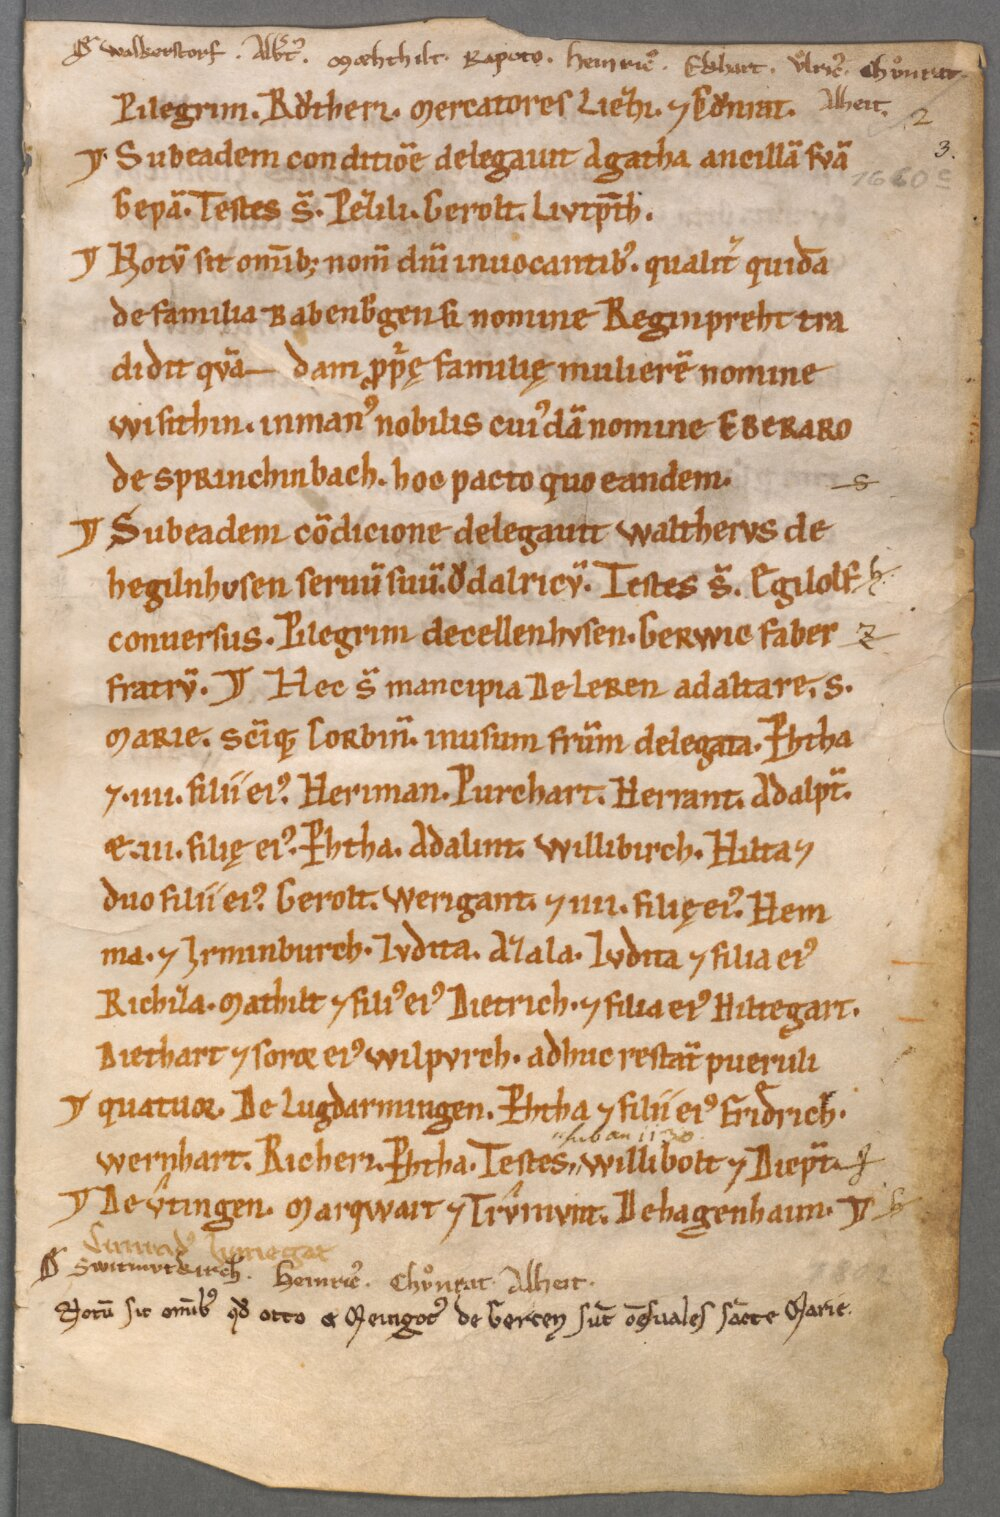 Walkerstorf. Albt᷒. Mæhthilt. Rapoto. Heinric᷒. Ekhart. Vͦlric᷒. Chvͦnrat.
Pilegrim. Rŏtheri. Mercatores Liezhi. ⁊ Alheit.
2
3.
⁊. Sub eadem conditiōe delegauit Agatha ancillā suā
1660
Gepā. Testes s̄. Pezili. Gerolt. Livtp̄th.
Notū sit om̄ib; nom̄ dn̄i inuocantib᷒. qualit̄ quidā
de familia Babenb̄gensi nomine Reginpreht tra
didit quā— dam p̱p̄ę familię mulierē nomine
Wisithin. in man᷒ nobilis cui᷒dā nomine EBERARO
de SPRINCHINBACH. hoc pacto quo eandem.
s
Sub eadem cōdicione delegauit Waltherus de
hegilnhusen seruū suū. Ŏdalricū. Testes s̄. Egilolf
conuersus. Pilegrim de cellenhusen. Gerwic faber
fratrū. Hec s̄ mancipia De LEREN ad altare. s.
MARIE. Sc̄iq; CORBIN̄. in usum fr̄um delegata. P̄htha
⁊. IIII. filii ei᷒. Heriman. Purchart. Herrant. Adalp̄t.
&. III. filię ei᷒. P̄htha. Adalint. Willibirch. Hilta ⁊
duo filii ei᷒. Gerolt. Werigant. ⁊ IIII. filię ei᷒. Hem
ma. ⁊ Irminburch. Ivdita. Azala. Ivdita ⁊ filia ei᷒
Richiza. Mathilt ⁊ fili᷒ ei᷒ Dietrich. ⁊ filia ei᷒ Hiltegart.
Diethart ⁊ soror ei᷒ Wilpurch. adhuc restāt pueruli
quatuor. De Lugdarmingen. P̄htha ⁊ filii ei᷒ Fridrich.
sub an 1130.
Wernhart. Richeri. P̄htha. Testes, Willibolt ⁊ Diep̄t.
De Vtingen. Marqwart ⁊ Trv̂nvnt. De hagenhaim.
Switmvtkirch. Heinric᷒. Chvͦnrat. Alheit.
Notū sit om̄ib᷒ qd̄ otto & Meingoz᷒ de Gerten sūt c̄ēsuales sāctę Marię.